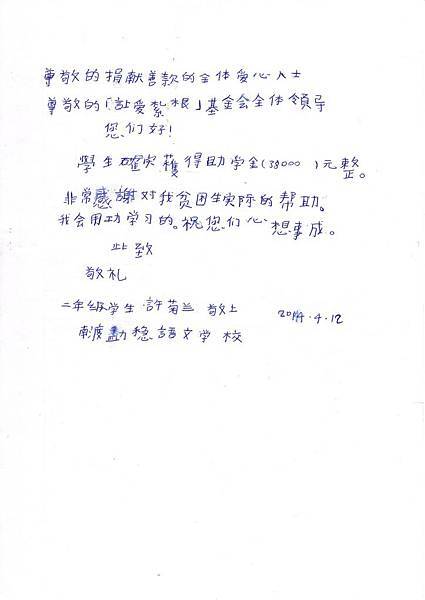 尊敬的捐献善款的全体爱心人士
尊敬的「讓爱紮根」基金会全体領导
您们好!
學生確实獲得助学金(38000 )元整。
非常感謝对我贫困生实际的帮助。
我会用功学习的。祝您们心想事成。
此致
敬礼
二年级学生 許菊兰 敬上 2014.4.12
勳穏語文学校